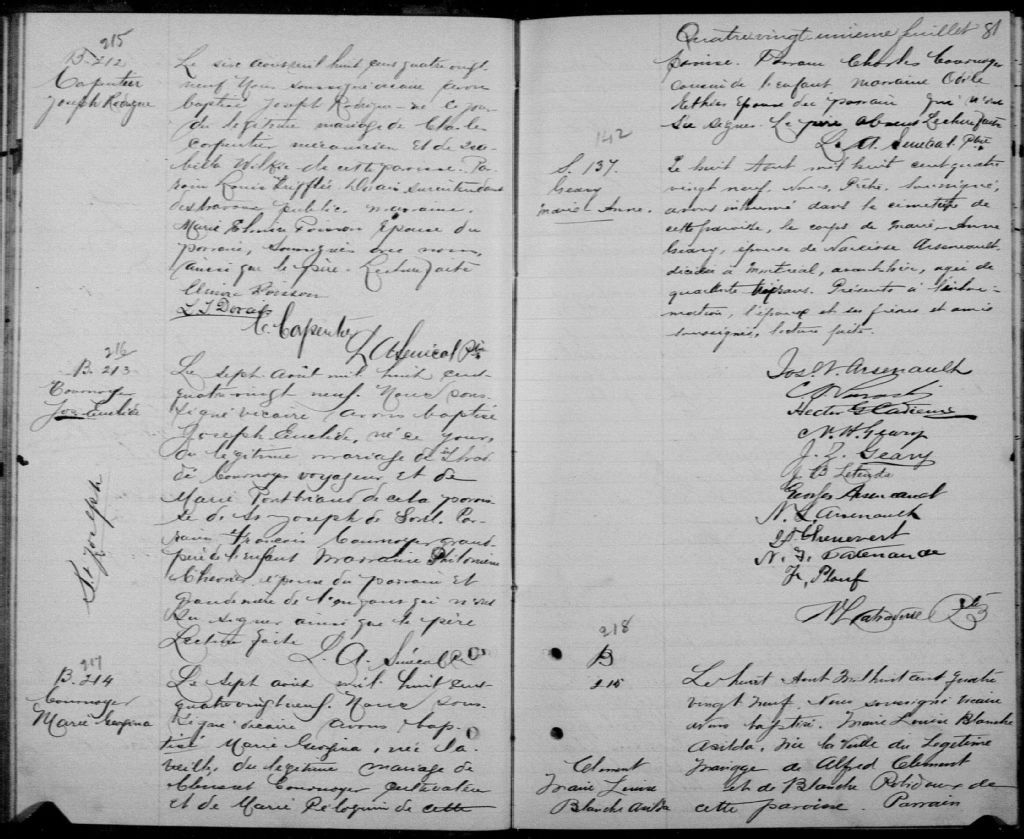 215
B. 212
Carpentier
Joseph Rodrigue
Le six août mil huit cent quatre vingt
neuf Nous soussigné vicaire avons
baptisé Joseph Rodrigue né ce jour
du légitime mariage de Charles
Carpentier mécanicien et de
de cette paroisse. Par
rain Louis surintendant
des travaux publics, marraine
Marie Elmira Poisson Epouse du
parrain, soussignés avec nous,
ainsi que le père. Lecture faite
Elmire Poisson
L J Dorais
C. Carpentier
L A Senécal Ptre
216
B. 213
Cournoyer
Jos Euclide
St Joseph
Le sept août mil huit cent
quatre vingt neuf. Nous sous
signé vicaire avons baptisé
Joseph Euclide, né ce jour,
du légitime mariage de
Cournoyer voyageur et de
Marie Pontbriand de la parois
se de St Joseph de Sorel. Par
rain François Cournoyer grand
père de l'enfant Marraine Philomène
épouse du parrain et
grandmère de l'enfant qui n'ont
su signer ainsi que le père
Lecture faite
L. A. Sénécal Ptre
217
B. 214
Cournoyer
Marie Georgina
Le sept août mil huit cent
quatre vingt neuf. Nous sous
signé vicaire avons bap
tisé Marie Georgina, née la
veille, du légitime mariage de
Clément Cournoyer cultivateur
et de Marie Péloquin de cette
Quatrevingt unieme feuillet 81
paroisse. Parrain Charles Cournoyer
cousin de l'enfant marraine Odile
Ethier Epouse du parrain qui n'ont
su signer. Le père absent Lecture faite
L. A. Senecal Ptre
142
S. 137.
Geary
Marie-Anne.
Le huit Aout mil huit cent quatre
vingt neuf, Nous, Prêtre, Soussigné,
avons inhumé dans le cimetière de
cette paroisse, le corps de Marie-Anne
Geary, épouse de Narcisse Arseneault
décédée à Montreal, avant hier, agée de
quarante trois ans. Présents à l'inhu-
mation, l'époux et ses frères et amis
soussignés, lecture faite.
Jos N. Arsenault
Hector G Cadieux
N. H. Geary
J. Z. Geary
Georges Arsenault
N. L. Arsenault
Chenevert
N. F.
F. Plouf
Ptre
218
B
215
Clement
Marie Louise
Blanche Asilda
Le huit Aout Mil huit cent quatre
vingt neuf, Nous soussigné vicaire
avons baptisé Marie Louise Blanche
Asilda, née la Veille du Legitime
Mariage de Alfred Clement
et de Blanche de
cette paroisse. Parrain